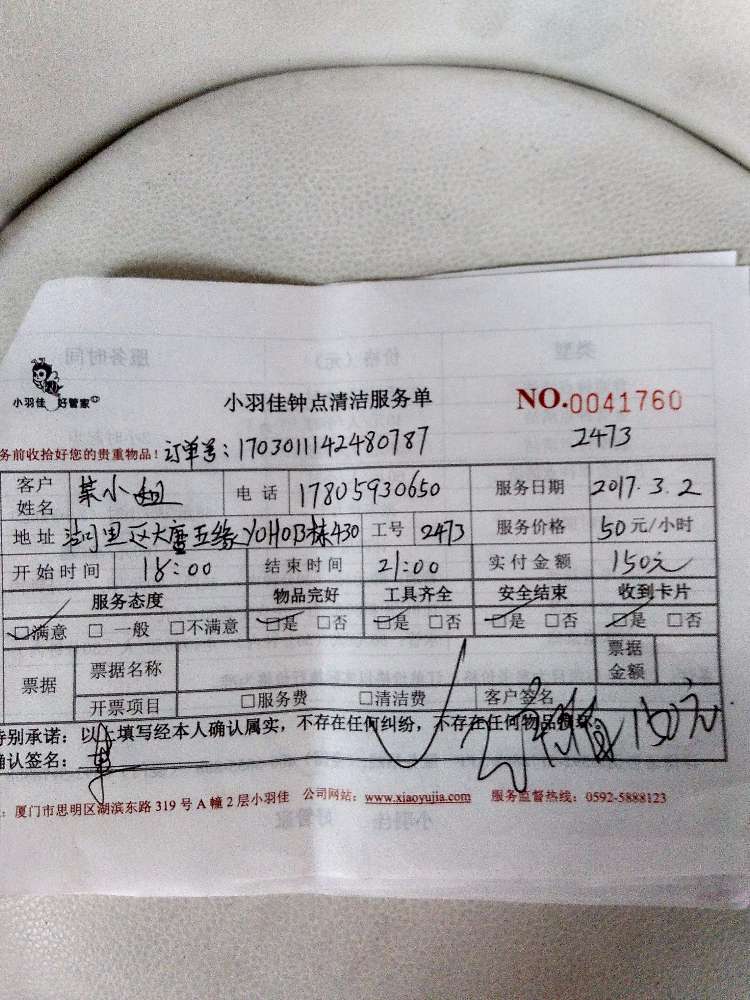 小羽佳 好管家
小羽佳钟点清洁服务单 NO.0041760
务前收拾好您的贵重物品! 订单号:1703011142480787 2473
客户姓名 小姐 电话 17805930650 服务日期 2017.3.2
地址 湖里区大唐五缘YOHOB栋430 工号 2473 服务价格 50元/小时
开始时间 18:00 结束时间 21:00 实付金额 150元
服务态度 物品完好 工具齐全 安全结束 收到卡片
☑满意 □一般 □不满意 ☑是 □否 ☑是 □否 ☑是 □否 ☑是 □否
票据 票据名称 票据金额
开票项目 □服务费 □清洁费 客户签名
特别承诺:以上填写经本人确认属实,不存在任何纠纷,不存在任何物品
确认签名: 150元
:厦门市思明区湖滨东路 319 号 A 幢 2 层小羽佳 公司网站:www.xiaoyujia.com 服务监督热线:0592-5888123